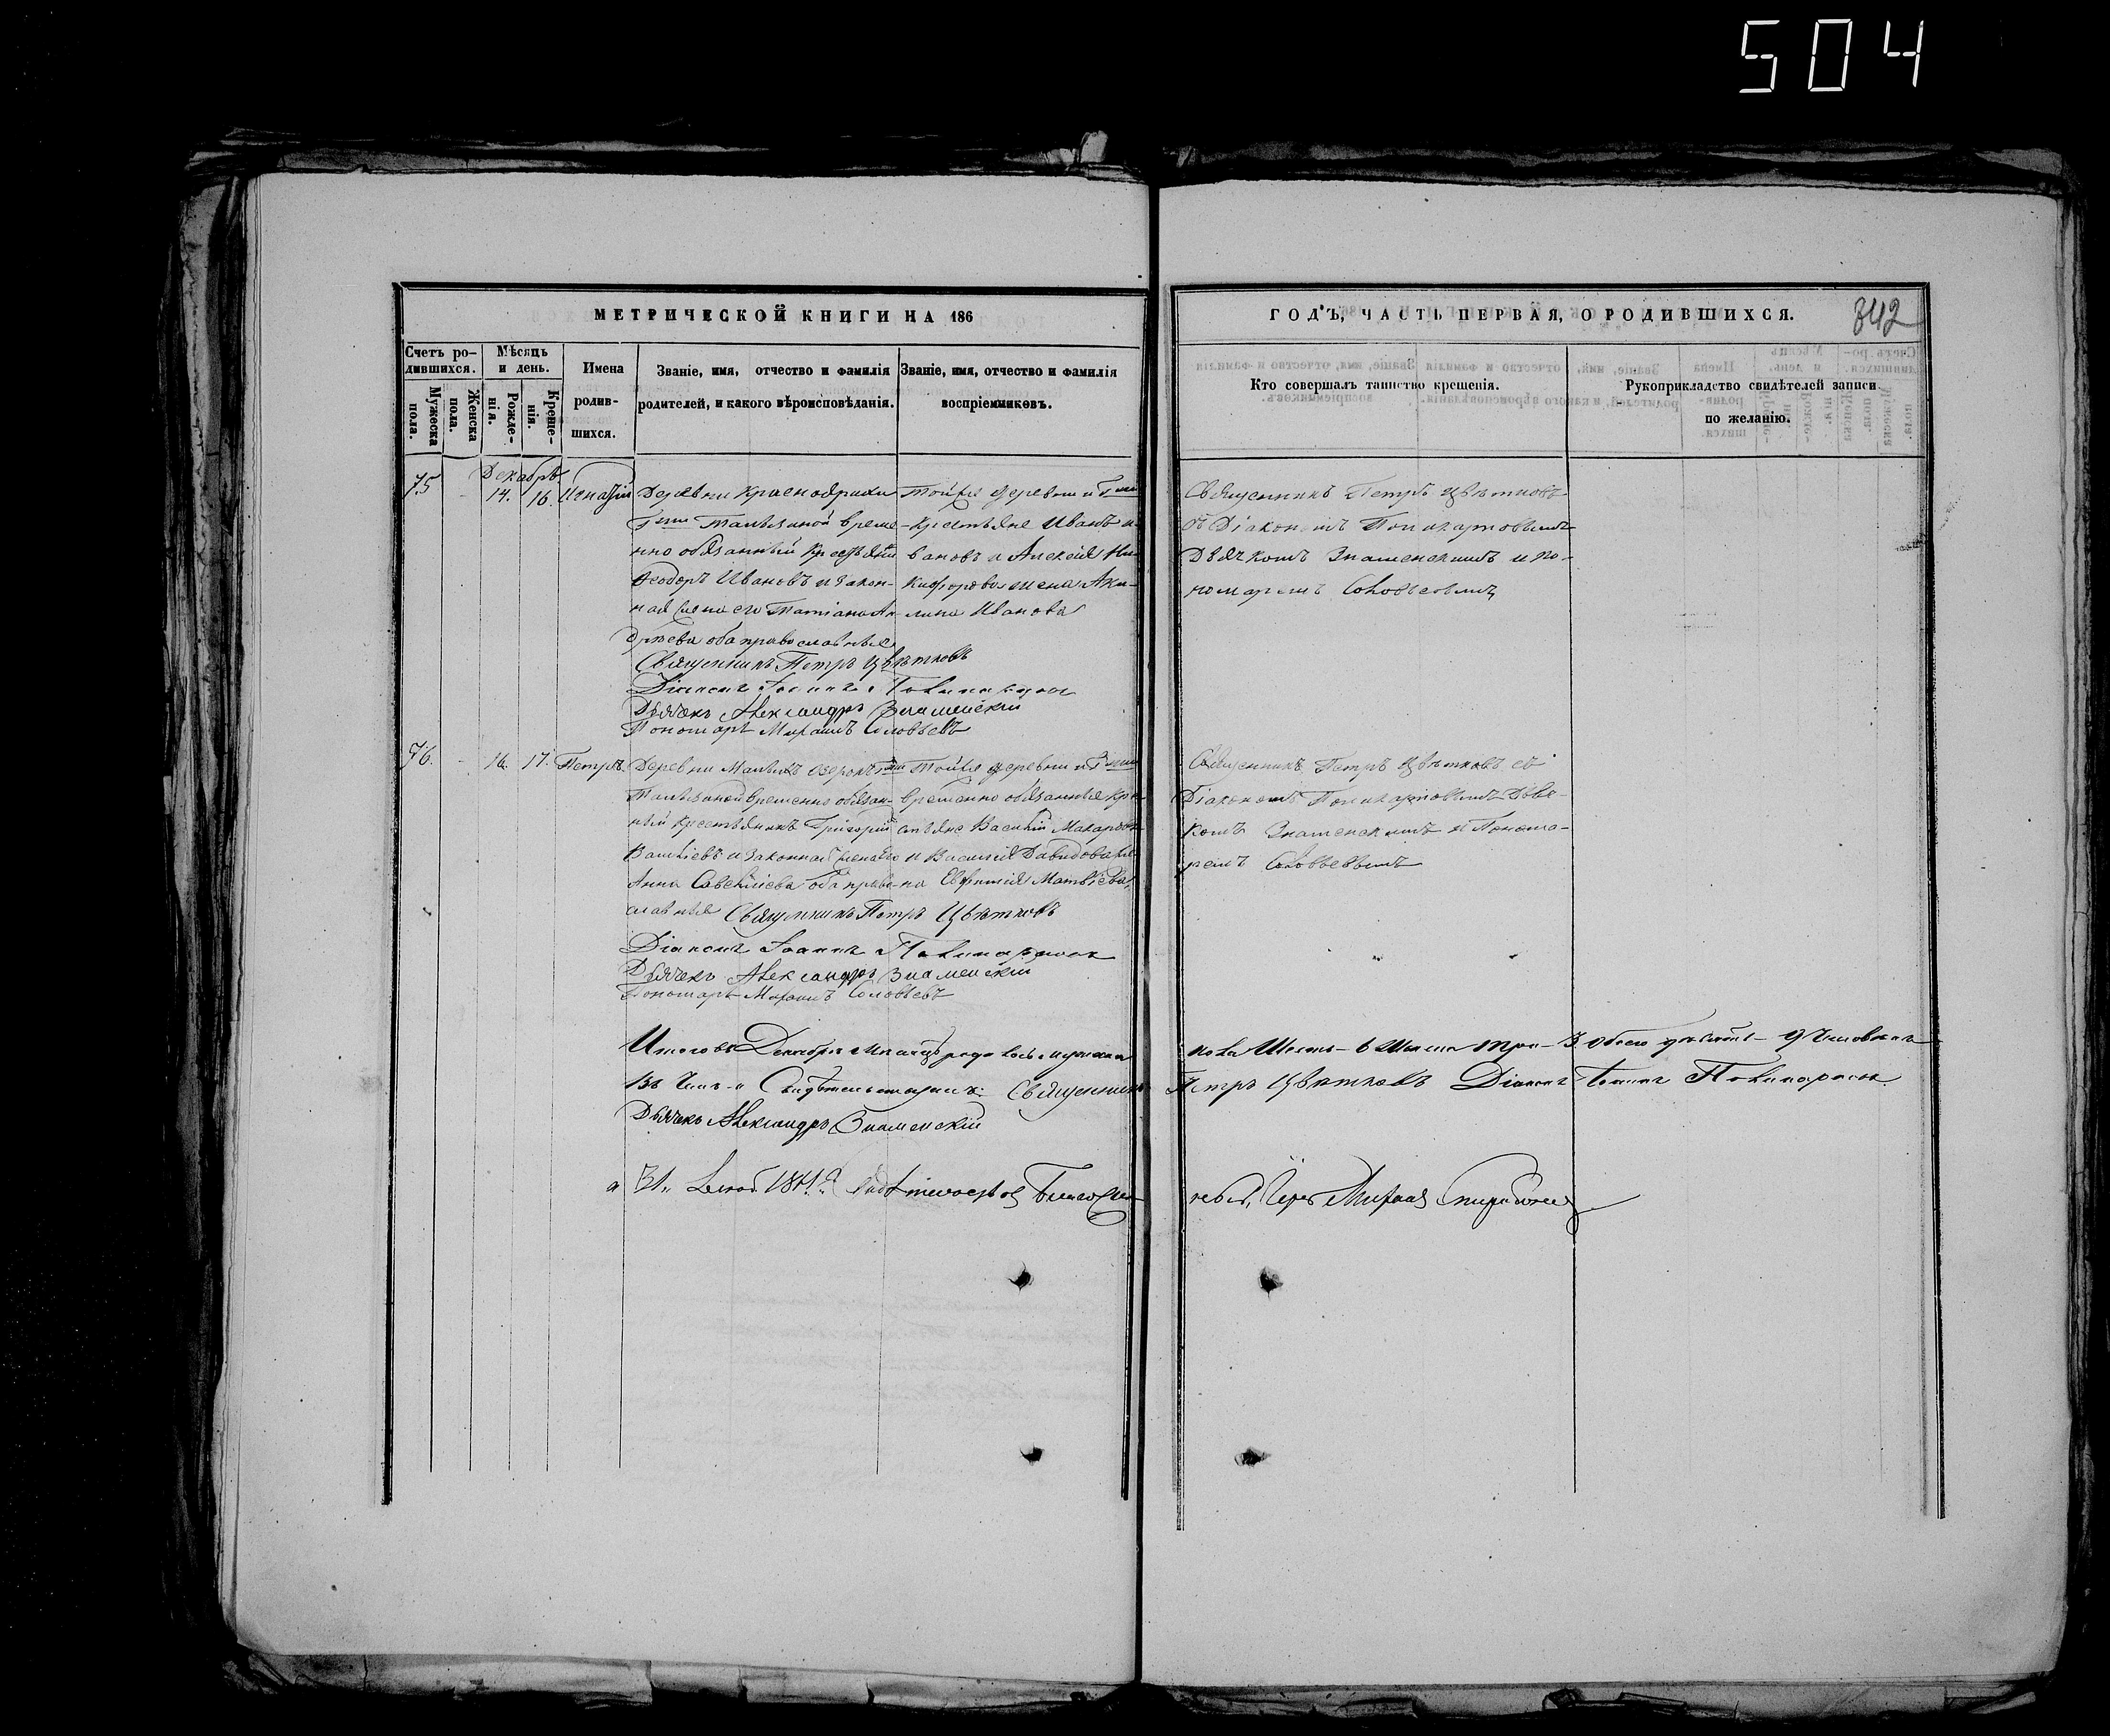 504
МЕТРИЧЕСКОЙ КНИГИ НА 186
ГОДЪ, ЧАСТЬ ПЕРВАЯ, О РОДИВШИХСЯ.
342
Счетъ ро-
дившихся.
Мѣсяцъ
и день.
Имена
родив-
шихся.
Званіе, имя, отчество и фамилія
родителей, и какого вѣроисповѣданія.
Званіе, имя, отчество и фамилія
воспріемниковъ.
Мужеска
пола.
Женска
пола.
Рожде-
нія.
Креще-
нія.
Кто совершалъ таинство крещенія.
Рукоприкладство свидѣтелей записи
по желанію.
Декабрь
75
14.
16.
Игнатій
Деревни
временно обязанный крестьянинъ
Ѳеодоръ Ивановъ и закон-
ная жена его Татіана Ан-
дреева оба православные
Священникъ Петръ Цвѣтковъ
Діаконъ Іоаннъ Поликарповъ
Дьячекъ Александръ Знаменскій
Пономарь Михаилъ Соловьевъ
Тойже деревни и
крестьяне Иванъ И-
вановъ и Алексѣя Ни-
кифорова жена Аки-
лина Иванова
Священникъ Петръ Цвѣтковъ
съ Діакономъ Поликарповымъ
Дьячкомъ Знаменскимъ и по-
номаремъ Соловьевымъ
76.
16.
17.
Петръ.
Деревни Малыхъ Озерокъ
временно обязан-
ный крестьянинъ Григорий
Васильевъ и законная жена его
Анна Савельева оба право-
славные Священникъ Петръ Цвѣтковъ
Діаконъ Іоаннъ Поликарповъ
Дьячекъ Александръ Знаменскій
Пономарь Михаилъ Соловьевъ
Тойже деревни и
временно обязанные кре-
стьяне Василій Макаровъ
и Василія Давидова же-
на Евфимія Матвѣева
Священникъ Петръ Цвѣтковъ съ
Діакономъ Поликарповымъ Дьяч-
комъ Знаменскимъ и Понома-
ремъ Соловьевымъ
Итого въ Декабрѣ мѣсяцѣ родилось мужеска
пола шесть - 6 женска три - 3 обоего 9 человѣкъ
Въ чемъ и свидѣтельствуемъ: Священникъ Петръ Цвѣтковъ Діаконъ Іоаннъ Поликарповъ
Дьячекъ Александръ Знаменскій